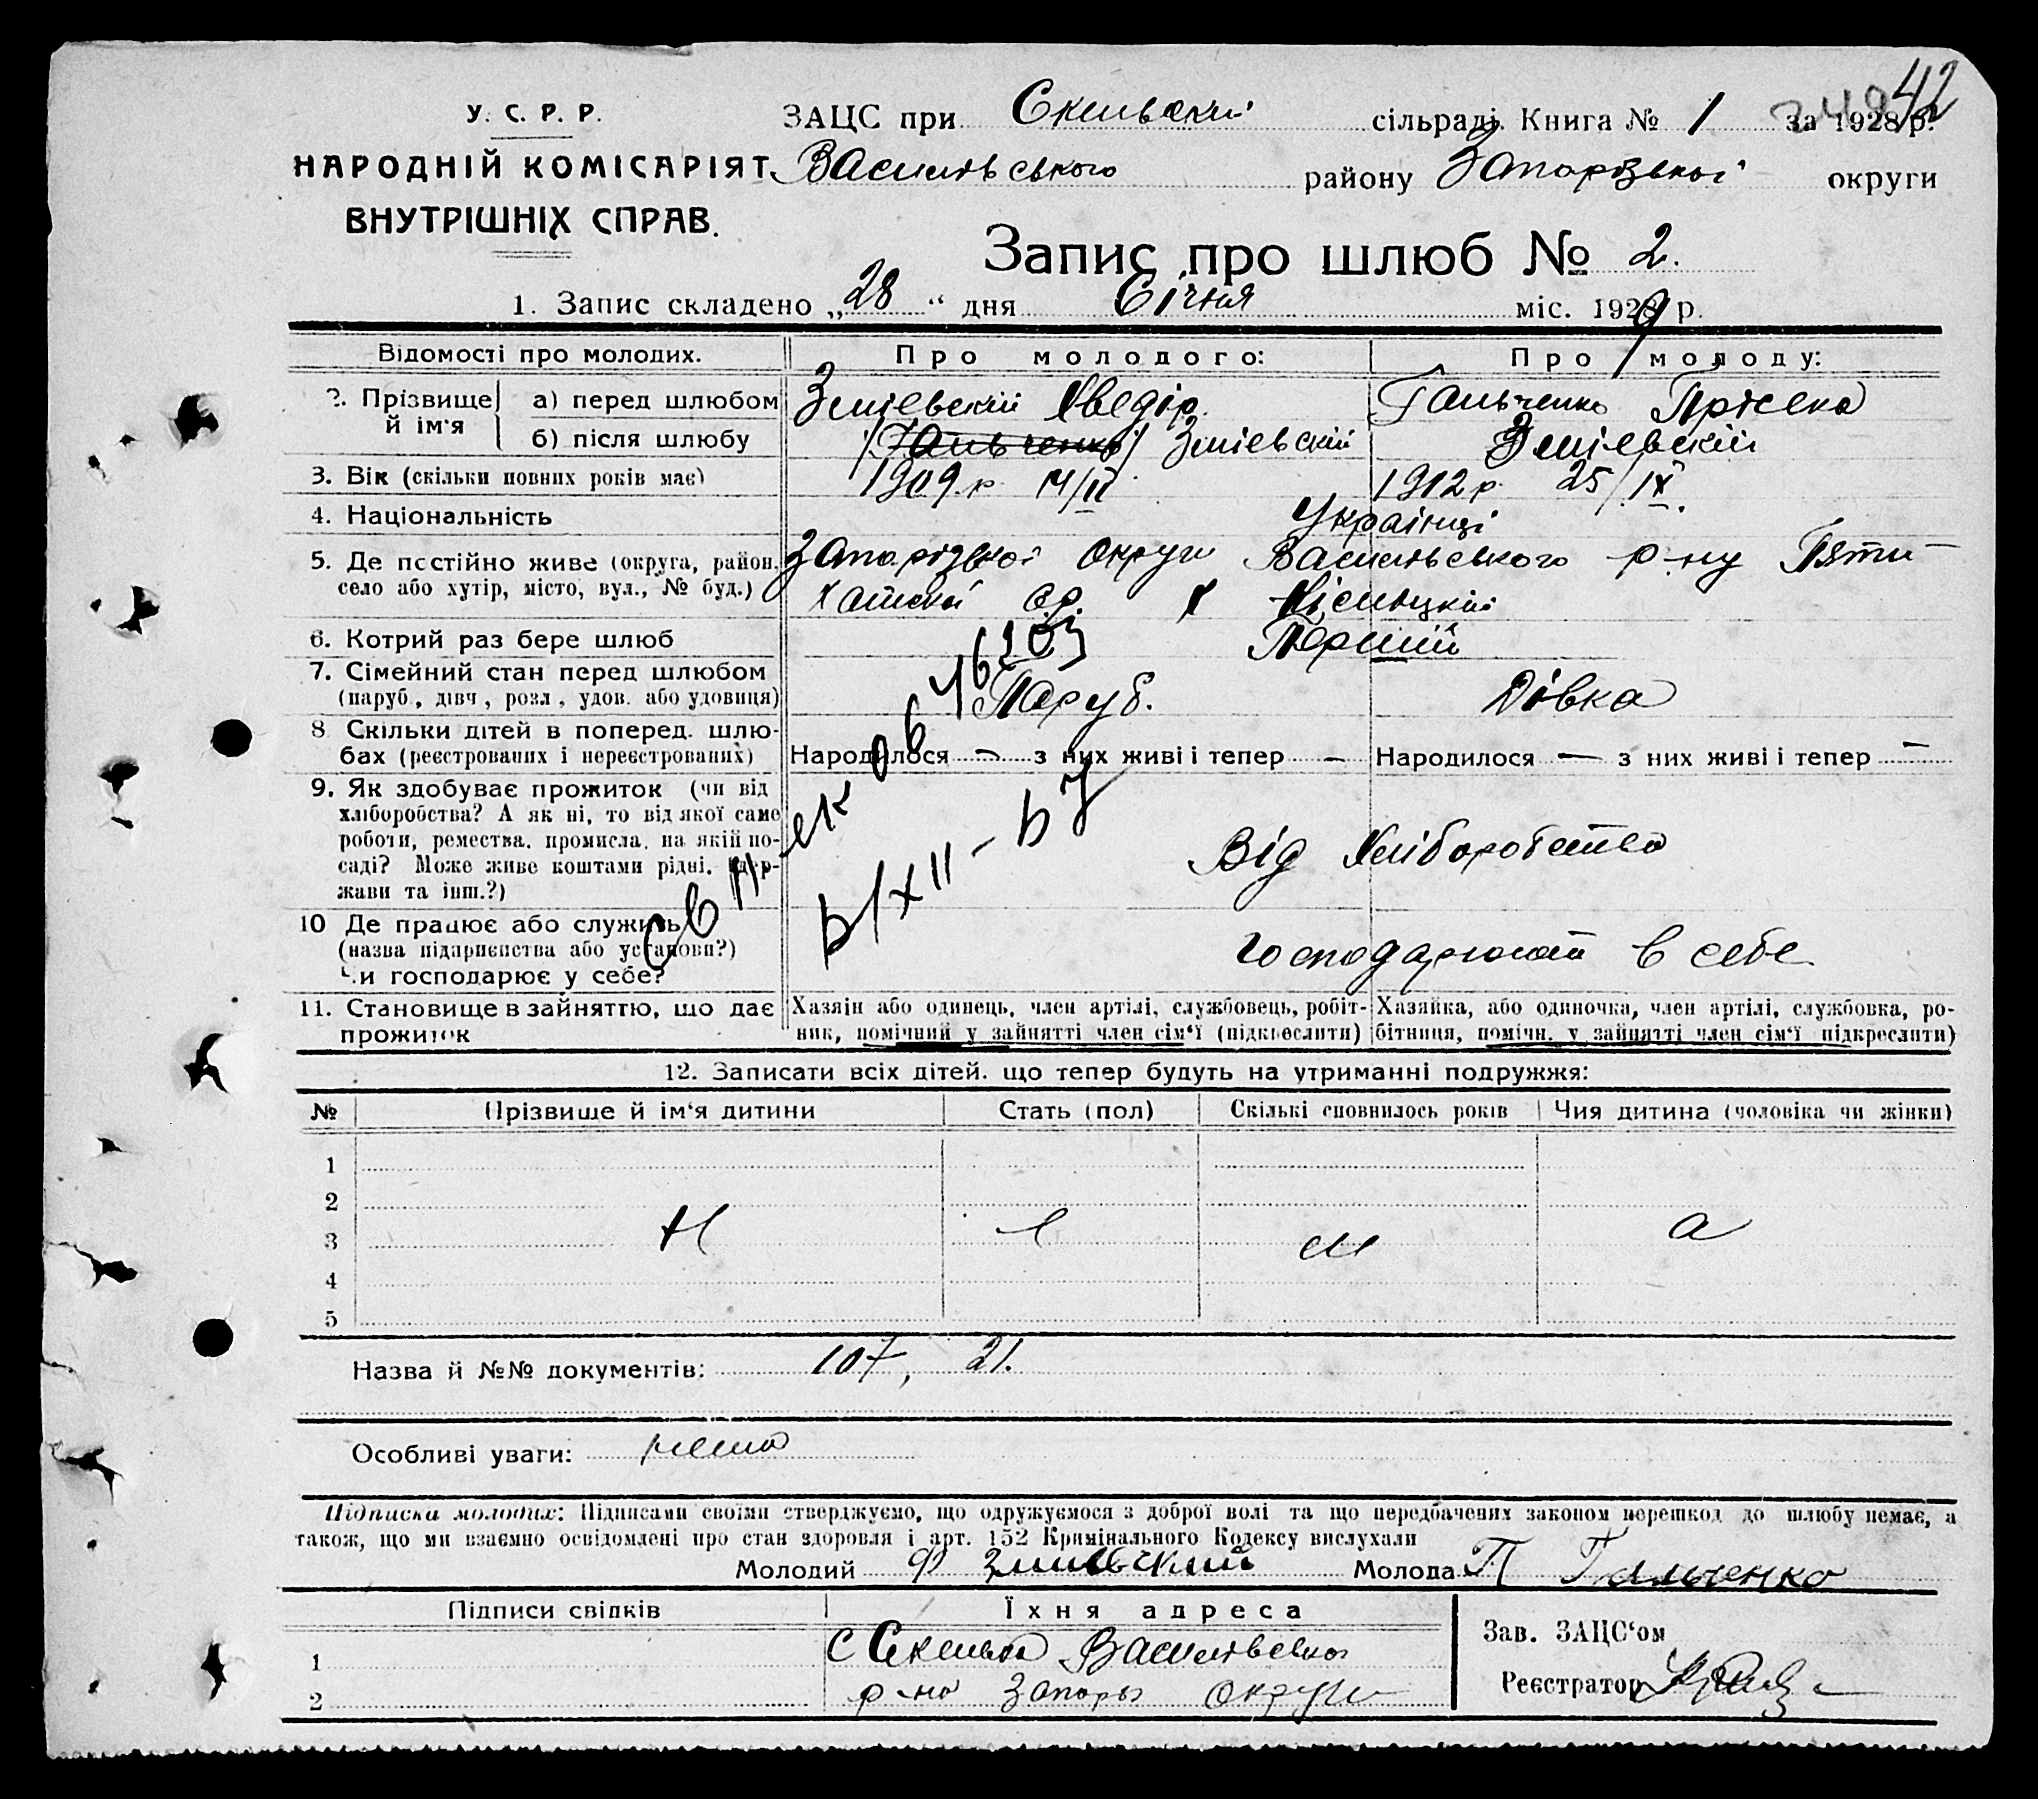 42
У. С. Р. Р.
ЗАЦС при Скельскій сільраді. Книга № 1 за 1928 р.
НАРОДНІЙ КОМІСАРІЯТ
Василівського району Запорізької округи
ВНУТРІШНІХ СПРАВ.
Запис про шлюб № 2.
1. Запис складено „28“ дня Січня міс. 1929 р.
Відомості про молодих. Про молодого: Про молоду:
2. Прізвище й ім'я
а) перед шлюбом Зміевский Хведір Гальченко Пріська
б) після шлюбу (Гальченко) Зміевский Зміевский
3. Вік (скільки повних років має) 1909 р. 14/II 1912 р. 25/IX.
4. Національність Українці
5. Де постійно живе (округа, район, село або хутір, місто, вул., № буд.) Запорізької округи Василівського р-ну Пяти-
хатскої с.р. х
6. Котрий раз бере шлюб Перший
7. Сімейний стан перед шлюбом
(паруб., дівч., розл., удов. або удовиця) Паруб. Дівка
8 Скільки дітей в поперед. шлю-
бах (реєстрованих і нереєстрованих) Народилося — з них живі і тепер — Народилося — з них живі і тепер —
9. Як здобуває прожиток (чи від
хліборобства? А як ні, то від якої саме
роботи, ремества, промисла, на якій по-
саді? Може живе коштами рідні, дер-
жави та інш.?) Від Хліборобства
10 Де працює або служить
(назва підприємства або установи?)
Чи господарює у себе? господарюють в себе
11. Становище в зайняттю, що дає
прожиток
Хазяїн або одинець, член артілі, службовець, робіт-
ник, помічний у зайнятті член сім'ї (підкреслити)
Хазяйка, або одиночка, член артілі, службовка, ро-
бітниця, помічн. у зайнятті член сім'ї підкреслити)
12. Записати всіх дітей, що тепер будуть на утриманні подружжя:
№ Прізвище й ім'я дитини Стать (пол) Скількі сповнилось років Чия дитина (чоловіка чи жінки)
1
2
3 Н е м а
4
5
Назва й №№ документів: 107, 21.
Особливі уваги: нема
Підписка молодих: Підписами своїми стверджуємо, що одружуємося з доброї волі та що передбачених законом перешкод до шлюбу немає, а
також, що ми взаємно освідомлені про стан здоровля і арт. 152 Кримінального Кодексу вислухали
Молодий Ф Змиевский Молода П Гальченко
Підписи свідків Їхня адреса
Зав. ЗАЦС'ом
1 с Скелька Василівського
2 р-на Запоріз округи
Реєстратор